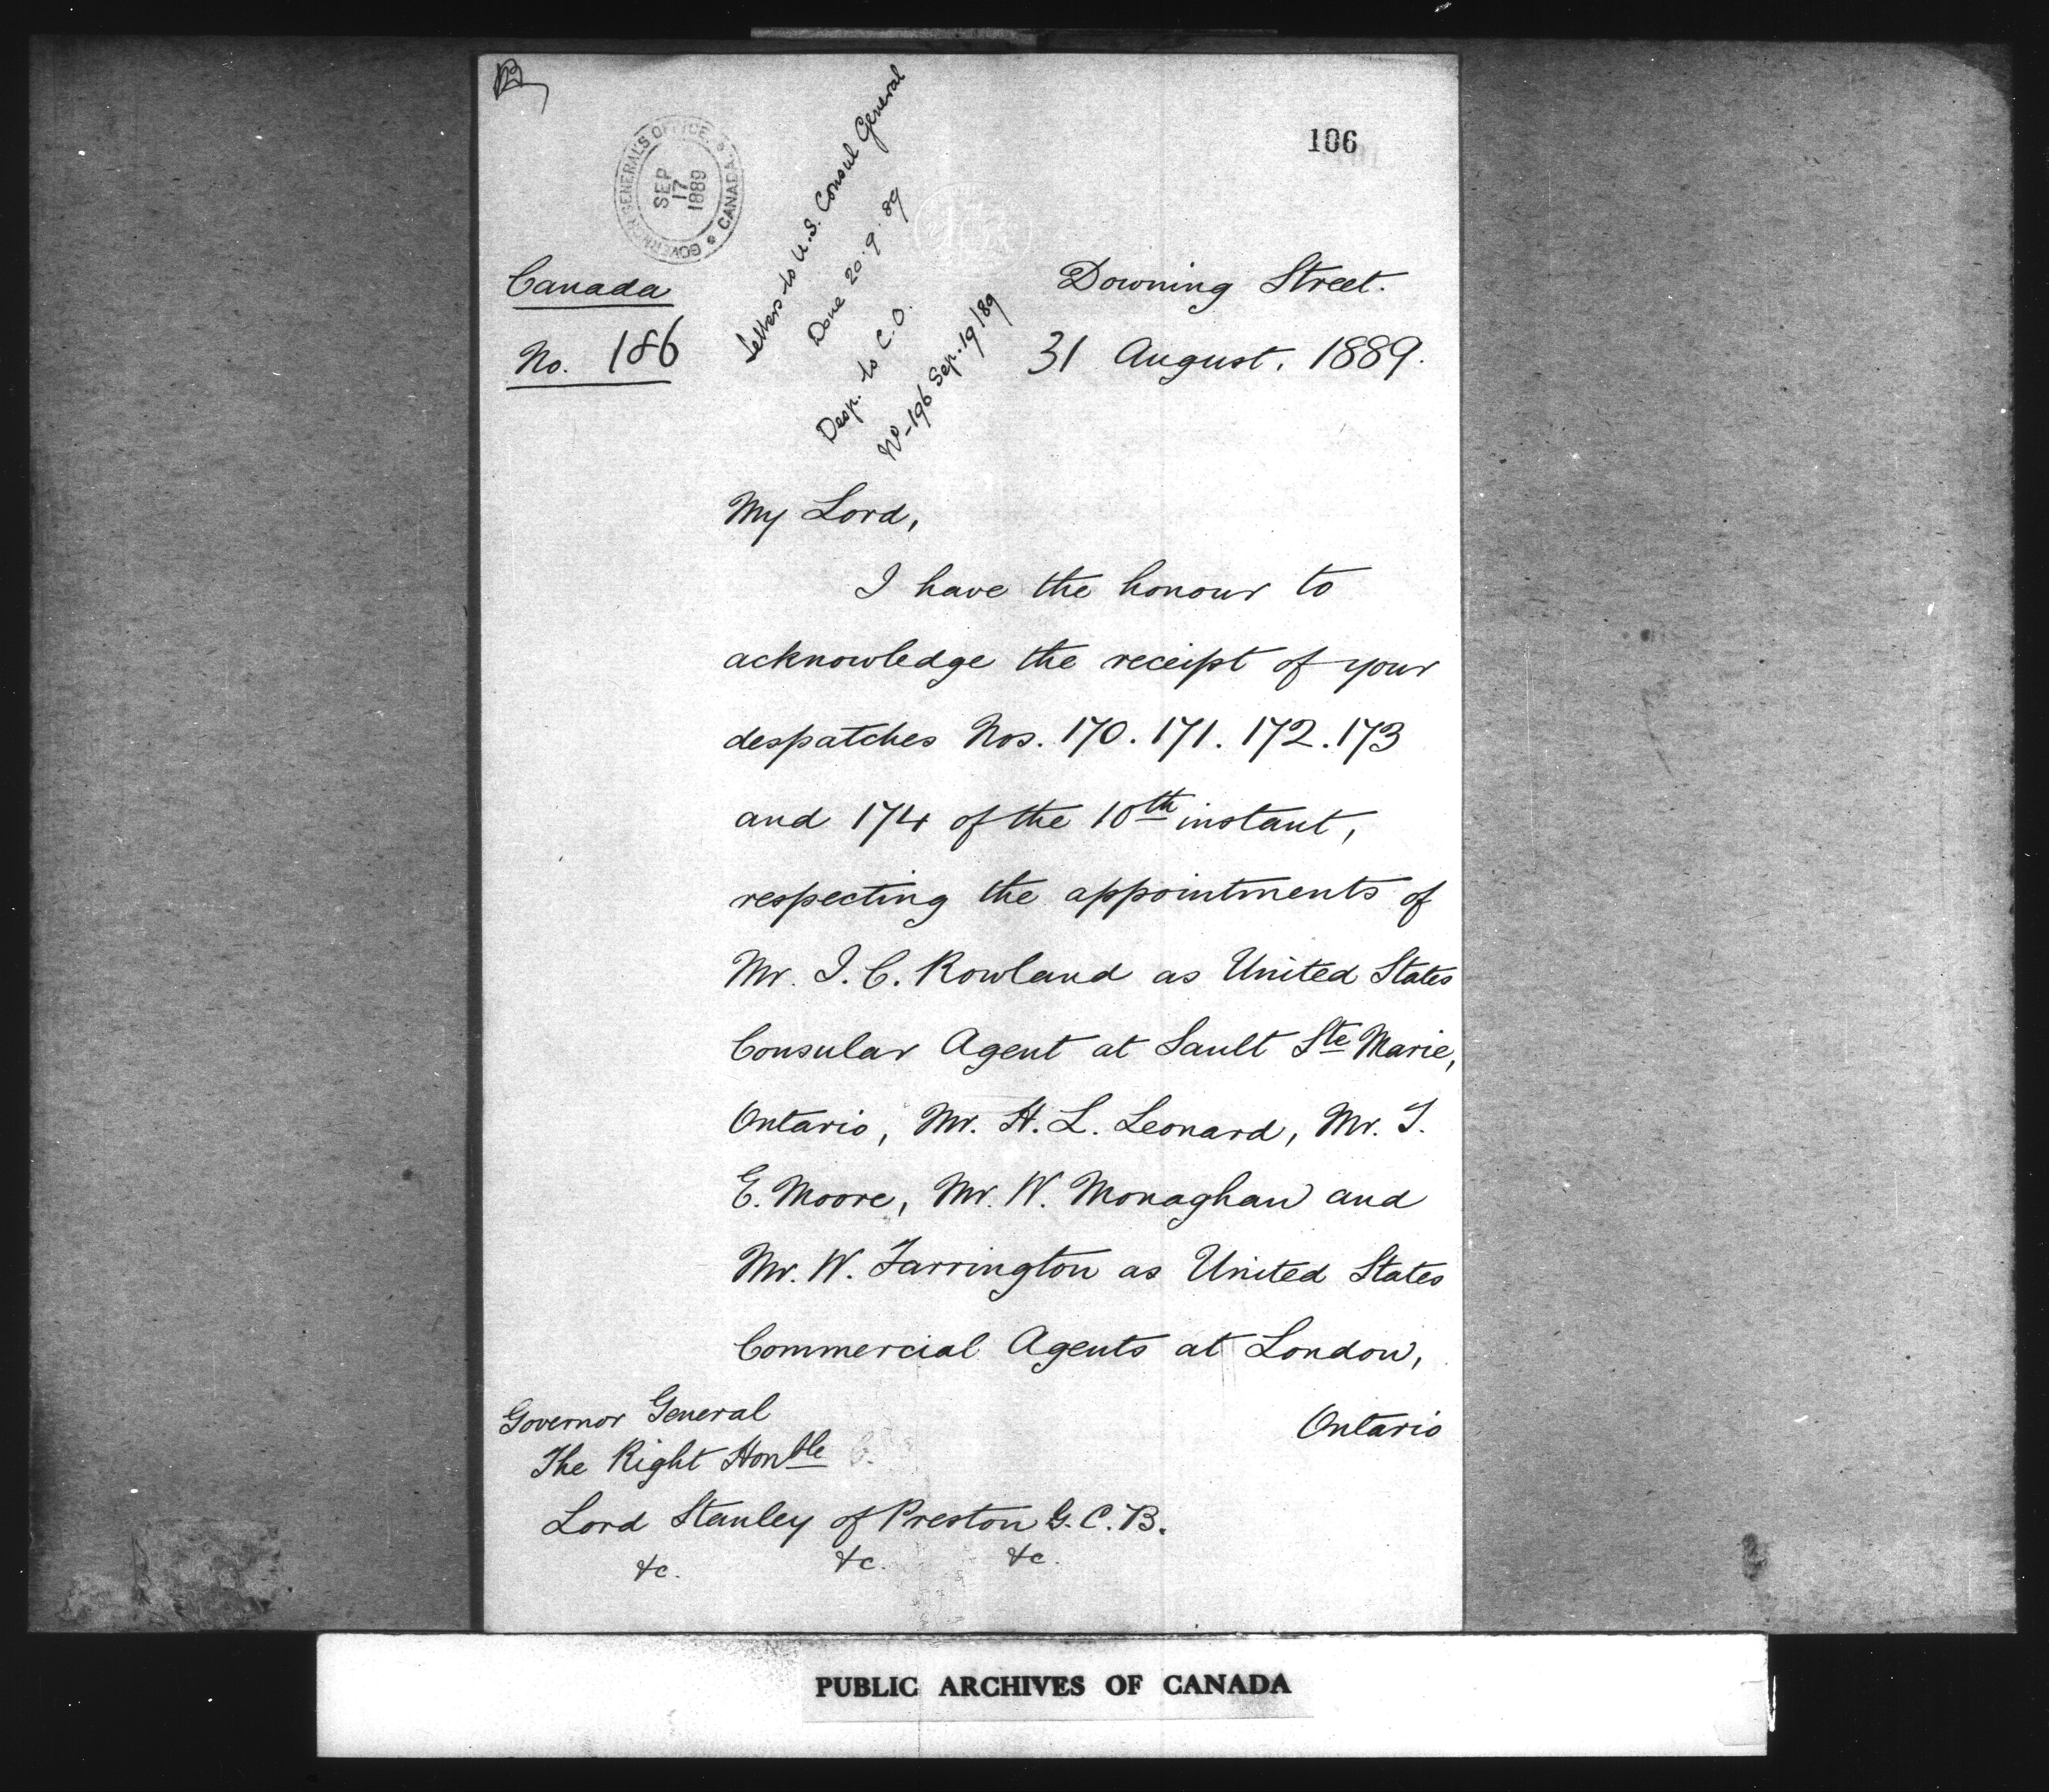 106
GOVERNOR GENERAL'S OFFICE CANADA
SEP
17
1889
Letters to U.S. Consul General
Done 20.9.89
Desp. to C.O.
No-196 Sep. 19/89
Canada
No. 186
Downing Street.
31 August, 1889.
My Lord,
I have the honour to
acknowledge the receipt of your
despatches Nos. 170. 171. 172. 173
and 174 of the 10th instant,
respecting the appointments of
Mr. I. C. Rowland as United States
Consular Agent at Sault Ste Marie,
Ontario, Mr. H. L. Leonard, Mr. I.
E. Moore, Mr. W. Monaghan and
Mr. W. Farrington as United States
Commercial Agents at London,
Ontario
Governor General
The Right Honble
Lord Stanley of Preston G.C.B.
&c. &c. &c.
PUBLIC ARCHIVES OF CANADA